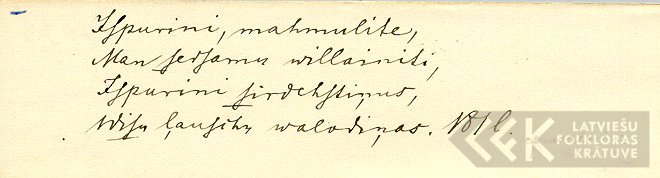 Ispurini, mahmulite,
Man sedsamu willainiti,
Ispurini sirdehstiņus,
Wisu ļauschu walodiņas. 1816.
LATVIEŠU
FOLKLORAS
KRĀTUVE